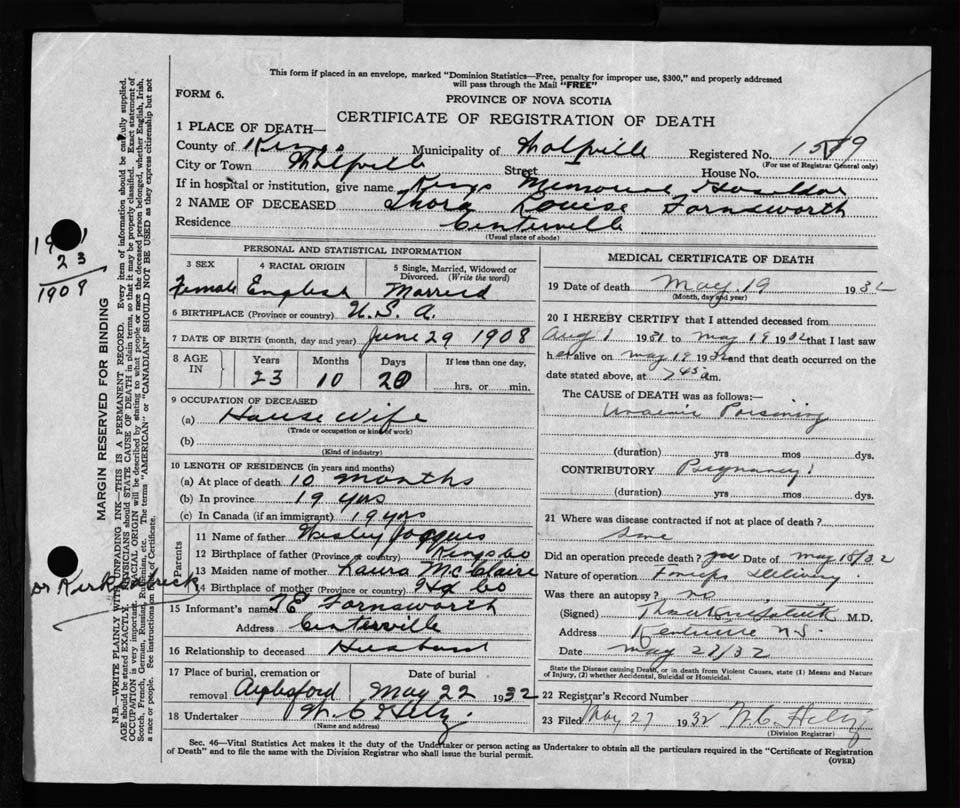 This form if placed in an envelope, marked "Dominion Statistics—Free, penalty for improper use, $300," and properly addressed
will pass through the Mail "FREE"
FORM 6.
PROVINCE OF NOVA SCOTIA
CERTIFICATE OF REGISTRATION OF DEATH
1 PLACE OF DEATH—
County of Kings Municipality of Wolfville Registered No. 1589
(For use of Registrar General only)
City or Town Wolfville Street House No.
If in hospital or institution, give name Kings Memorial
2 NAME OF DECEASED Thora Louise Farnsworth
Residence Centerville
(Usual place of abode)
PERSONAL AND STATISTICAL INFORMATION
3 SEX 4 RACIAL ORIGIN 5 Single, Married, Widowed or
Divorced. (Write the word)
Female English Married
6 BIRTHPLACE (Province or country) U.S.A.
7 DATE OF BIRTH (month, day and year) June 29 1908
8 AGE IN Years Months Days If less than one day,
23 10 20 hrs. or min.
9 OCCUPATION OF DECEASED
(a) House Wife
(Trade or occupation or kind of work)
(b)
(Kind of industry)
10 LENGTH OF RESIDENCE (in years and months)
(a) At place of death 10 months
(b) In province 19 yrs
(c) In Canada (if an immigrant) 19 yrs
Parents
11 Name of father Wesley
12 Birthplace of father (Province or country) Kings Co
13 Maiden name of mother Laura McClaire
14 Birthplace of mother (Province or country) Co
15 Informant's name E Farnsworth
Address Centerville
16 Relationship to deceased Husband
17 Place of burial, cremation or Date of burial
removal Aylesford May 22 1932
18 Undertaker
(Name and address)
MEDICAL CERTIFICATE OF DEATH
19 Date of death May 19 1932
(Month, day and year)
20 I HEREBY CERTIFY that I attended deceased from
Aug 1 1931 to May 19 1932 that I last saw
her alive on May 19 1932 and that death occurred on the
date stated above, at 7 45 a m.
The CAUSE OF DEATH was as follows:—
Uraemic Poisoning
(duration) yrs mos dys.
CONTRIBUTORY Pregnancy
(duration) yrs mos dys.
21 Where was disease contracted if not at place of death?
Did an operation precede death? yes Date of May 18/32
Nature of operation Forceps Delivery
Was there an autopsy? no
(Signed) M.D.
Address Kentville N.S.
Date May 28/32
State the Disease causing Death, or in death from Violent Causes, state (1) Means and Nature
of Injury, (2) whether Accidental, Suicidal or Homicidal.
22 Registrar's Record Number
23 Filed May 27 1932
(Division Registrar)
Sec. 46—Vital Statistics Act makes it the duty of the Undertaker or person acting as Undertaker to obtain all the particulars required in the "Certificate of Registration
of Death" and to file the same with the Division Registrar who shall issue the burial permit.
(OVER)
MARGIN RESERVED FOR BINDING
N.B.—WRITE PLAINLY WITH UNFADING INK—THIS IS A PERMANENT RECORD. Every item of information should be carefully supplied.
AGE should be stated EXACTLY. PHYSICIANS should STATE CAUSE OF DEATH in plain terms, so that it may be properly classified. Exact statement of
OCCUPATION is very important. RACIAL ORIGIN will be described by stating to what people or race the deceased person belonged, whether English, Irish,
Scotch, French, German, Russian, Ruthenian, etc. The terms "AMERICAN" or "CANADIAN" SHOULD NOT BE USED as they express citizenship but not
a race or people. See instructions on back of Certificate.
23
1909
or Kirkpatrick